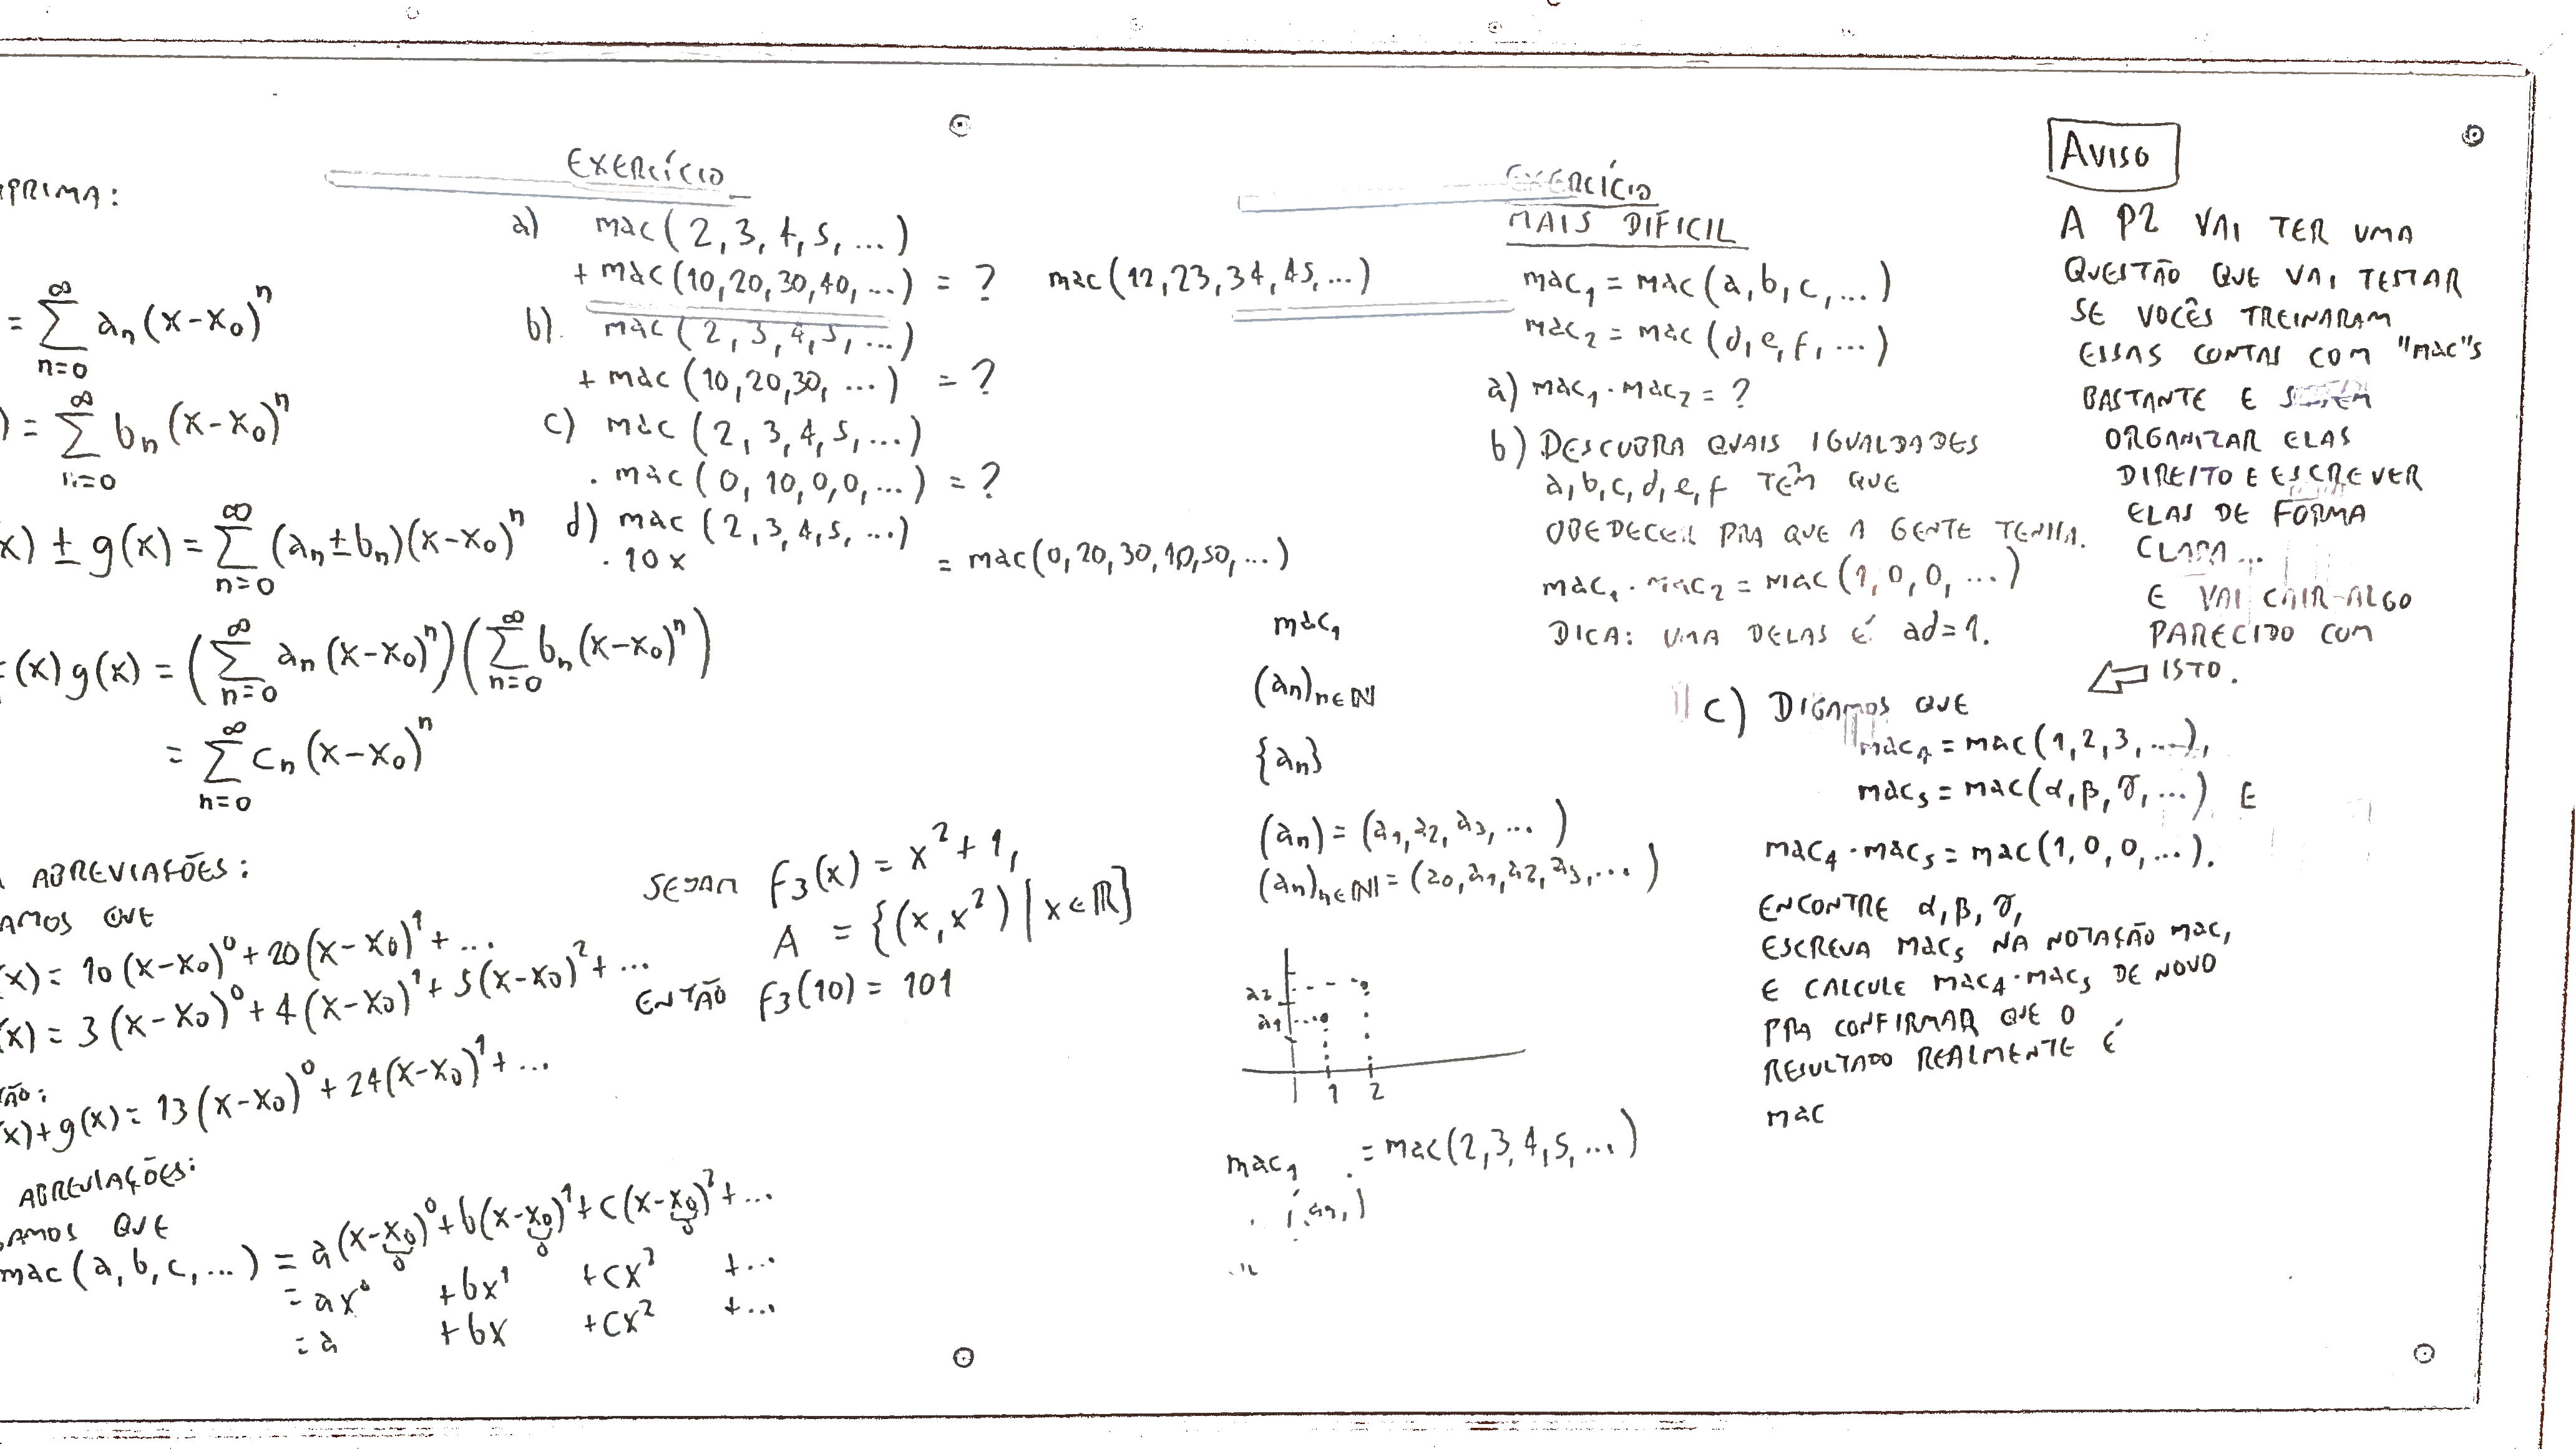 PRIMA:
= ∑_{n=0}^{∞} a_n (x-x_0)^n
) = ∑_{n=0}^{∞} b_n (x-x_0)^n
x) ± g(x) = ∑_{n=0}^{∞} (a_n ± b_n)(x-x_0)^n
(x) g(x) = (∑_{n=0}^{∞} a_n (x-x_0)^n)(∑_{n=0}^{∞} b_n (x-x_0)^n)
= ∑_{n=0}^{∞} c_n (x-x_0)^n
ABREVIAÇÕES:
AMOS QUE
(x) = 10(x-x_0)^0 + 20(x-x_0)^1 + ...
(x) = 3(x-x_0)^0 + 4(x-x_0)^1 + 5(x-x_0)^2 + ...
ÃO:
(x)+g(x) = 13(x-x_0)^0 + 24(x-x_0)^1 + ...
ABREVIAÇÕES:
AMOS QUE
mac(a,b,c,...) = a(x-x_0)^0 + b(x-x_0)^1 + c(x-x_0)^2 + ...
0 0 0
= ax^0 + bx^1 + cx^2 + ...
= a + bx + cx^2 + ...
EXERCÍCIO
a) mac(2,3,4,5,...)
+ mac(10,20,30,40,...) = ? mac(12,23,34,45,...)
b). mac(2,3,4,5,...)
+ mac(10,20,30,...) = ?
c) mac(2,3,4,5,...)
. mac(0,10,0,0,...) = ?
d) mac(2,3,4,5,...)
. 10x = mac(0,20,30,40,50,...)
SEJAM F_3(x) = x^2+1,
A = {(x,x^2) | x∈ℝ}
ENTÃO F_3(10) = 101
mac_1
(a_n)_{n∈ℕ}
{a_n}
(a_n) = (a_1,a_2,a_3,...)
(a_n)_{n∈ℕ} = (a_0,a_1,a_2,a_3,...)
a_2
a_1
1 2
mac_1 = mac(2,3,4,5,...)
EXERCÍCIO
MAIS DIFICIL
mac_1 = mac(a,b,c,...)
mac_2 = mac(d,e,f,...)
a) mac_1 . mac_2 = ?
b) DESCUBRA QUAIS IGUALDADES
a,b,c,d,e,f TÊM QUE
OBEDECER PRA QUE A GENTE TENHA
mac_1 . mac_2 = mac(1,0,0,...)
DICA: UMA DELAS É ad=1.
c) DIGAMOS QUE
mac_4 = mac(1,2,3,...),
mac_5 = mac(α,β,γ,...) E
mac_4 . mac_5 = mac(1,0,0,...).
ENCONTRE α,β,γ,
ESCREVA mac_5 NA NOTAÇÃO mac,
E CALCULE mac_4 . mac_5 DE NOVO
PRA CONFIRMAR QUE O
RESULTADO REALMENTE É
mac
AVISO
A P2 VAI TER UMA
QUESTÃO QUE VAI TESTAR
SE VOCÊS TREINARAM
ESSAS CONTAS COM "mac"S
BASTANTE E
ORGANIZAR ELAS
DIREITO E ESCREVER
ELAS DE FORMA
CLARA...
E VAI CAIR ALGO
PARECIDO COM
ISTO.